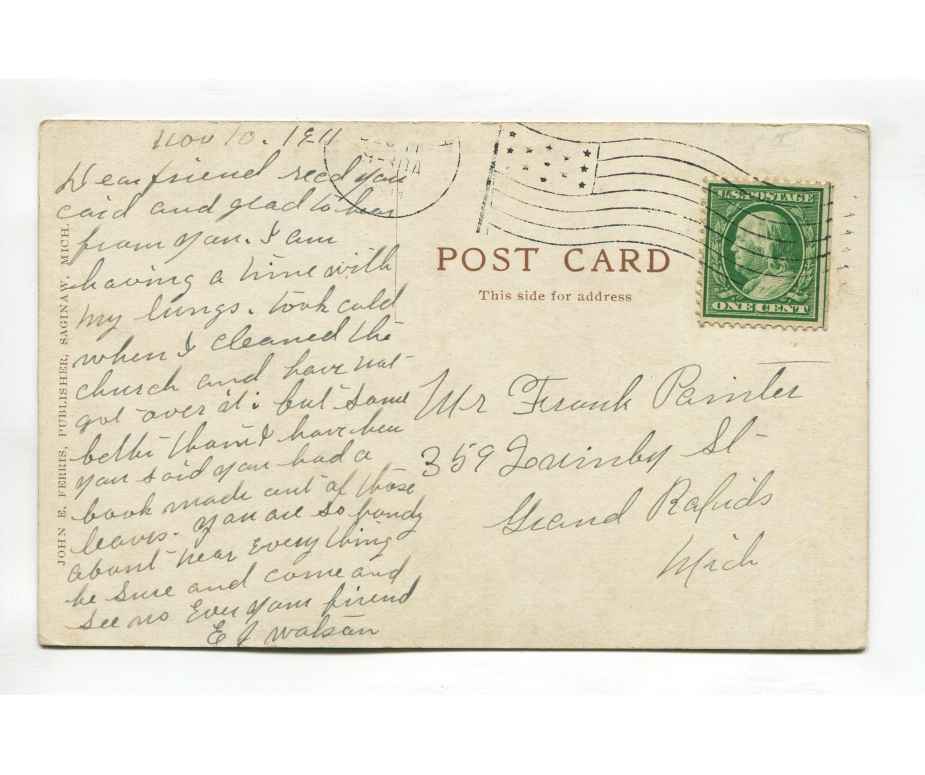 Nov 10. 1911
Dear friend recd you
card and glad to hear
from you. I am
having a time with
my lungs. took cold
when I cleaned the
church and have not
got over it. but some
better than I have been
you said you had a
book made out of those
leaves. you are so handy
about near every thing
be sure and come and
see us Ever your friend
E J Watson
JOHN E. FERRIS, PUBLISHER, SAGINAW, MICH.
POST CARD
This side for address
U.S. POSTAGE
ONE CENT
Mr Frank Painter
359 Quimby St
Grand Rapids
Mich